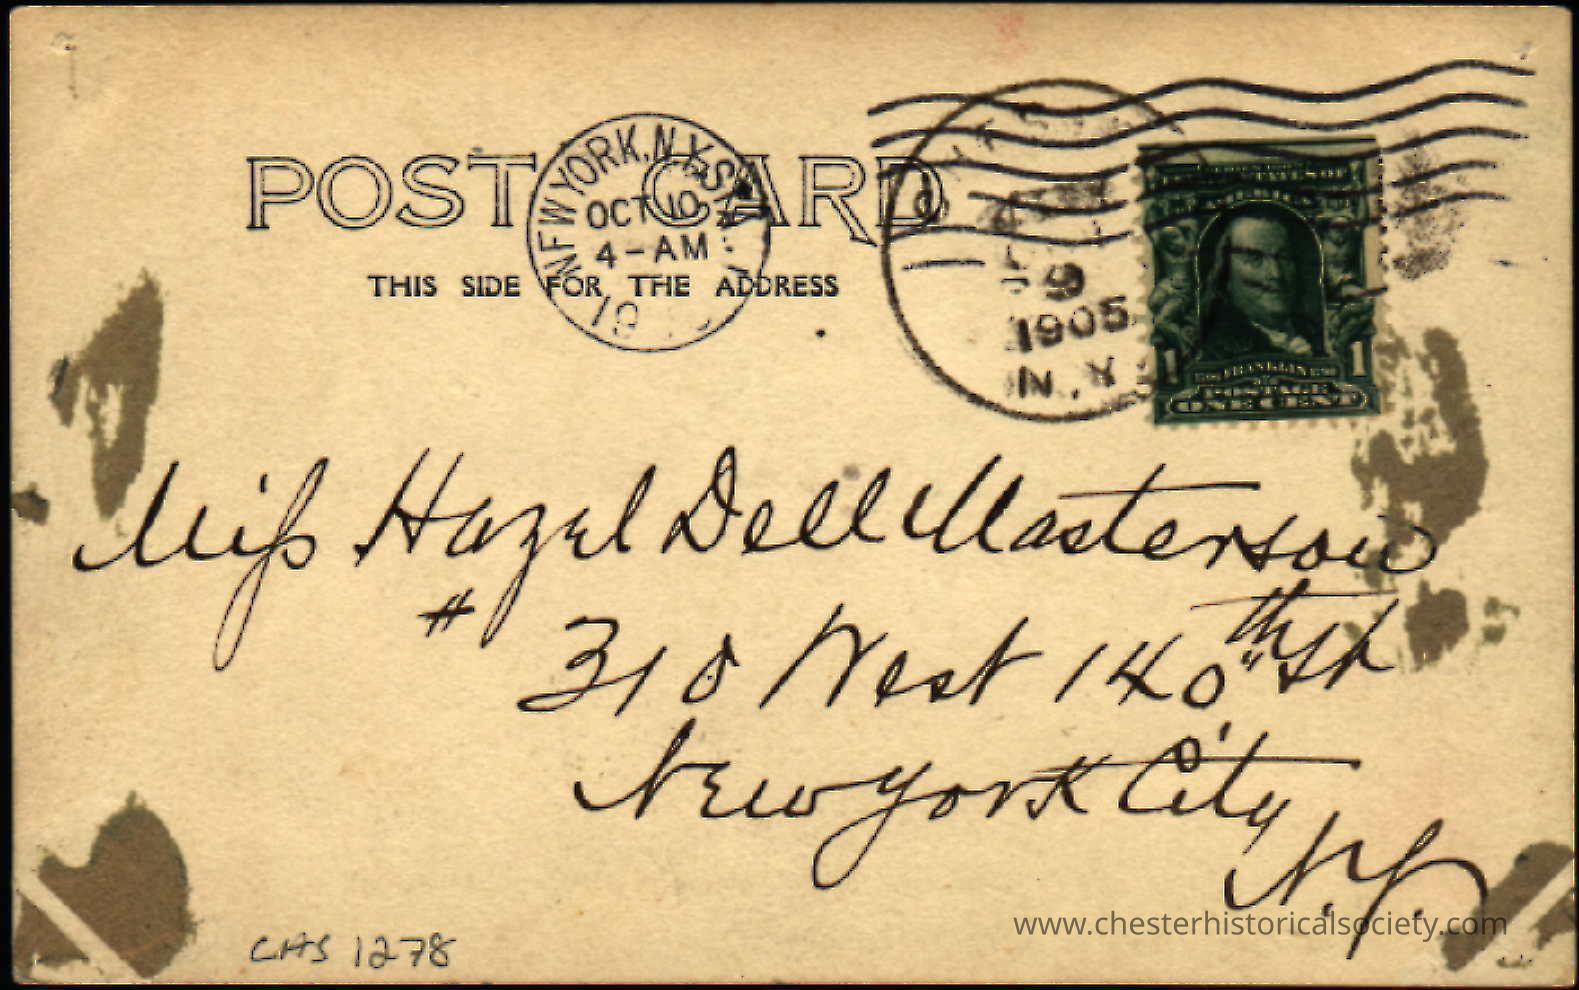 POST CARD
THIS SIDE FOR THE ADDRESS
NEW YORK, N.Y.
OCT 10
4-AM
9
1905
N.Y.
UNITED STATES OF AMERICA
1 FRANKLIN 1
POSTAGE
ONE CENT
Miss Hazel Dell Masterson
# 310 West 140th St
New York City
N.Y.
CHS 1278
www.chesterhistoricalsociety.com